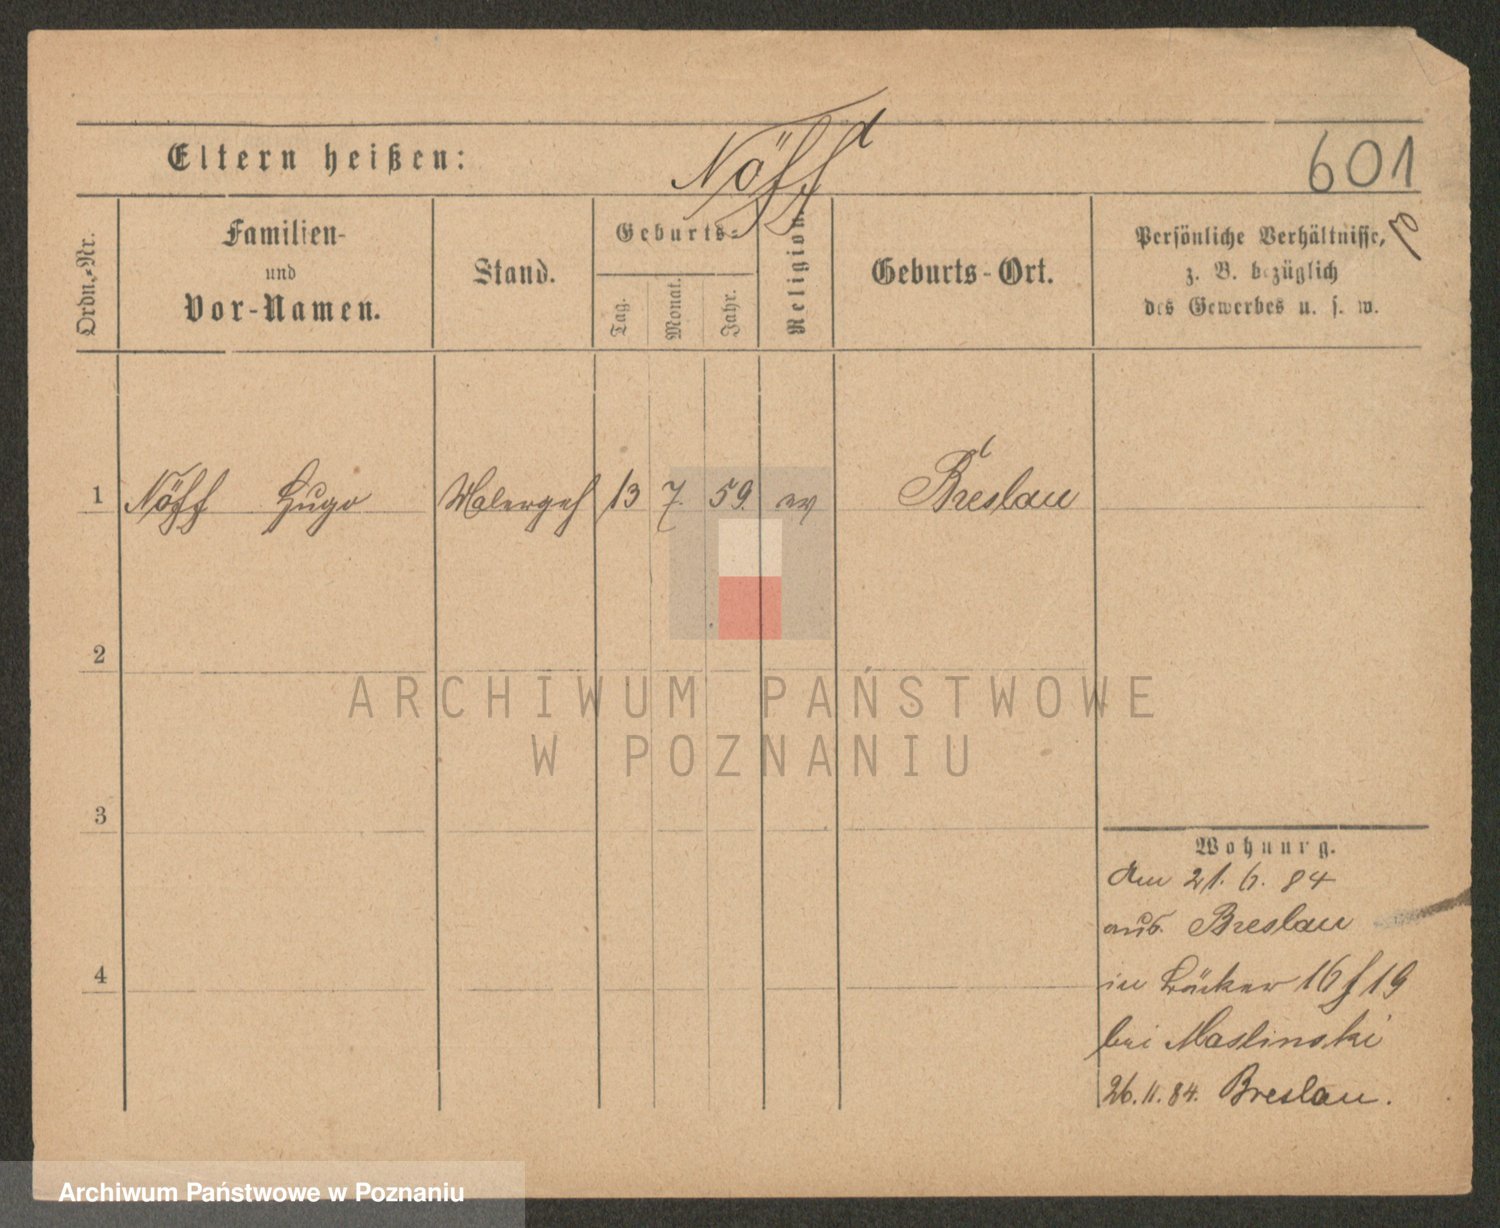 Eltern heißen: Nöff 601
Ordn.-Nr.
Familien-
und
Vor-Namen.
Stand.
Geburts-
Tag.
Monat.
Jahr.
Religion.
Geburts-Ort.
Persönliche Verhältnisse,
z. B. bezüglich
des Gewerbes u. s. w.
1 Nöff Hugo Malergeh 13 7. 59. ev Breslau
2
ARCHIWUM PAŃSTWOWE
W POZNANIU
3
Wohnung.
Am 21. 6. 84
aus Breslau
in Bäcker 16 f 19
bei Maslinski
26. 11. 84. Breslau.
4
Archiwum Państwowe w Poznaniu